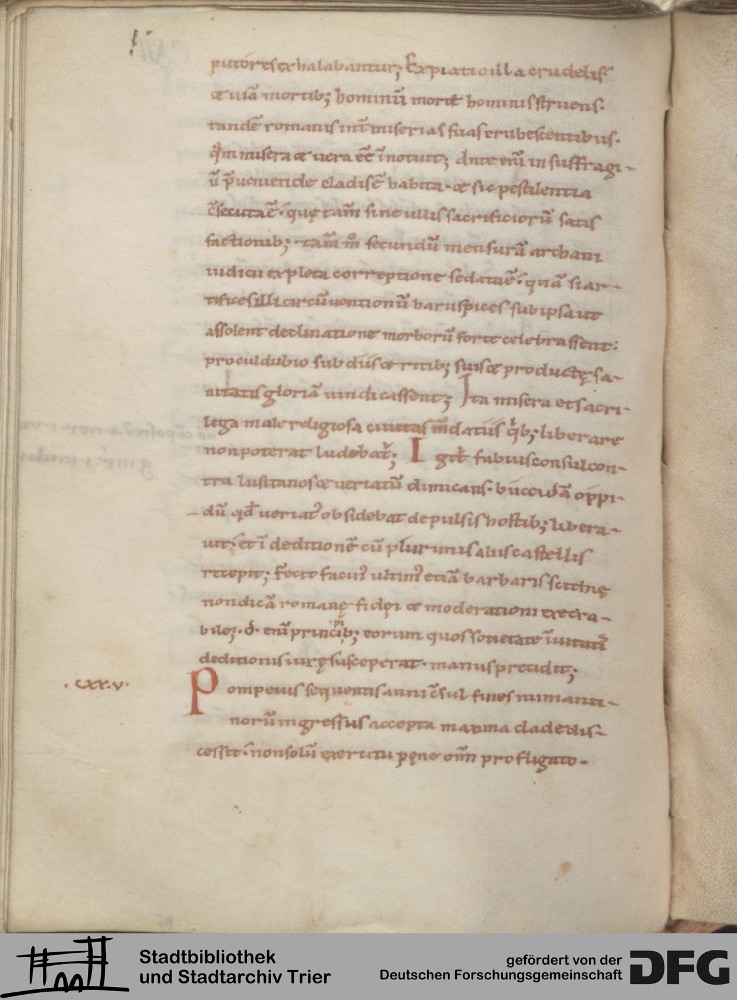 putores exhalabantur; Expiatio illa crudelis
& uiā mortib; hominū morte hominis struens.
tandē romanis int̄ miserias suas erubescentibus.
q̄m misera & uera eēt īnotuit; Ante eni in suffragi-
ū p̄ueniende cladis ē habita. & sic pestilentia
c̄secuta ē. que tam̄ sine ullis sacrificiorū satis
factionib; tam̄ m̊ secundū mensurā archani
iudicii expleta correptione sedata ē. quā si ar-
tifices illi circūuentionū haruspices sub ipsa ut
assolent declinatione morborū forte celebrassent:
proculdubio sub diis & ritib; suis & productę sa-
nitatis gloriā uindicassent; Ita misera et sacri-
lega male religiosa ciuitas m̄datiis q̇b; liberare
non poterat ludebat̄; Igit̄ fabius consul con-
tra lusitanos & ueriatū dimicans. bucciā oppi-
dū qd̄ ueriat᾽ obsidebat depulsis hostib; libera-
uit; et ī deditionē cū plurimis aliis castellis
recepit; Fecit facin᾽ ultim᾽ etiā barbaris scithię
non dicā romanę fidei & moderationi execra-
bile; .D. eni principib; eorum quos societate īuitatˢ
deditionis iurę susceperat. manus precidit;
.CXX.V. Pompeius sequentis anni c̄sul fines numanti-
norū ingressus accepta maxima clade dis-
cessit. non solū exercitu pęne om̄i profligato.
Stadtbibliothek
und Stadtarchiv Trier
gefördert von der
Deutschen Forschungsgemeinschaft
DFG